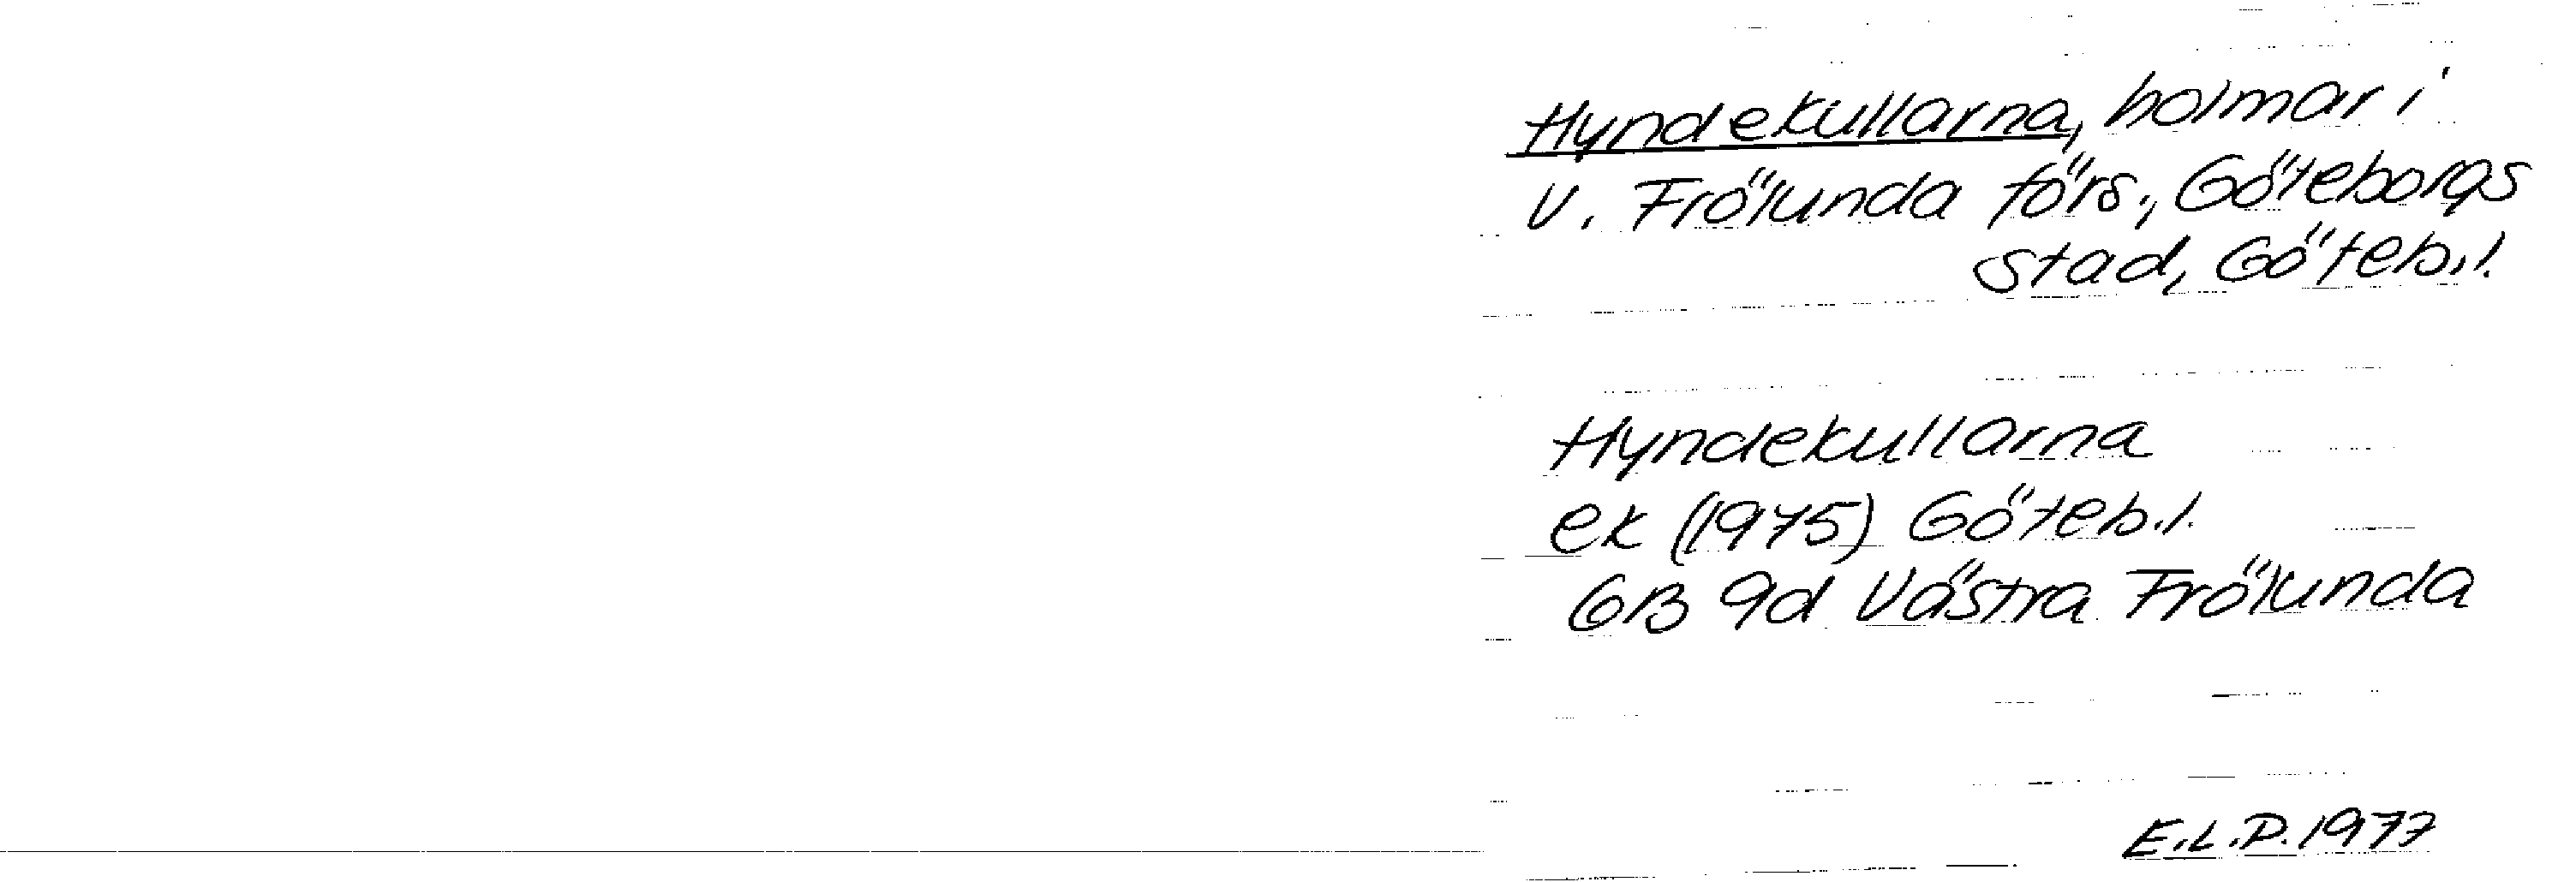 Hyndekullarna, holmar i
V. Frölunda förs., Göteborgs
stad, Göteb.l.
Hyndekullarna
ek (1975) Göteb.l.
6B 9d Västra Frölunda
E.L.P. 1977